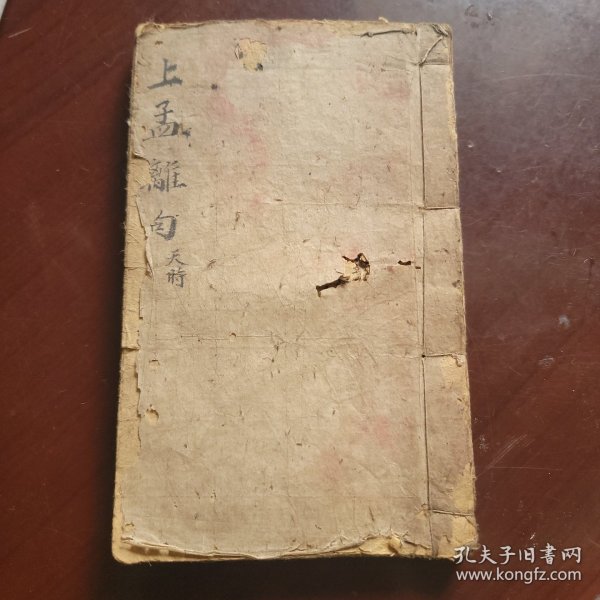 上孟離句
天時
孔夫子旧書网
www.kongfz.com